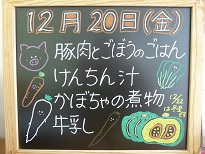 12月20日(金)
豚肉とごぼうのごはん
けんちん汁
かぼちゃの煮物
牛乳し